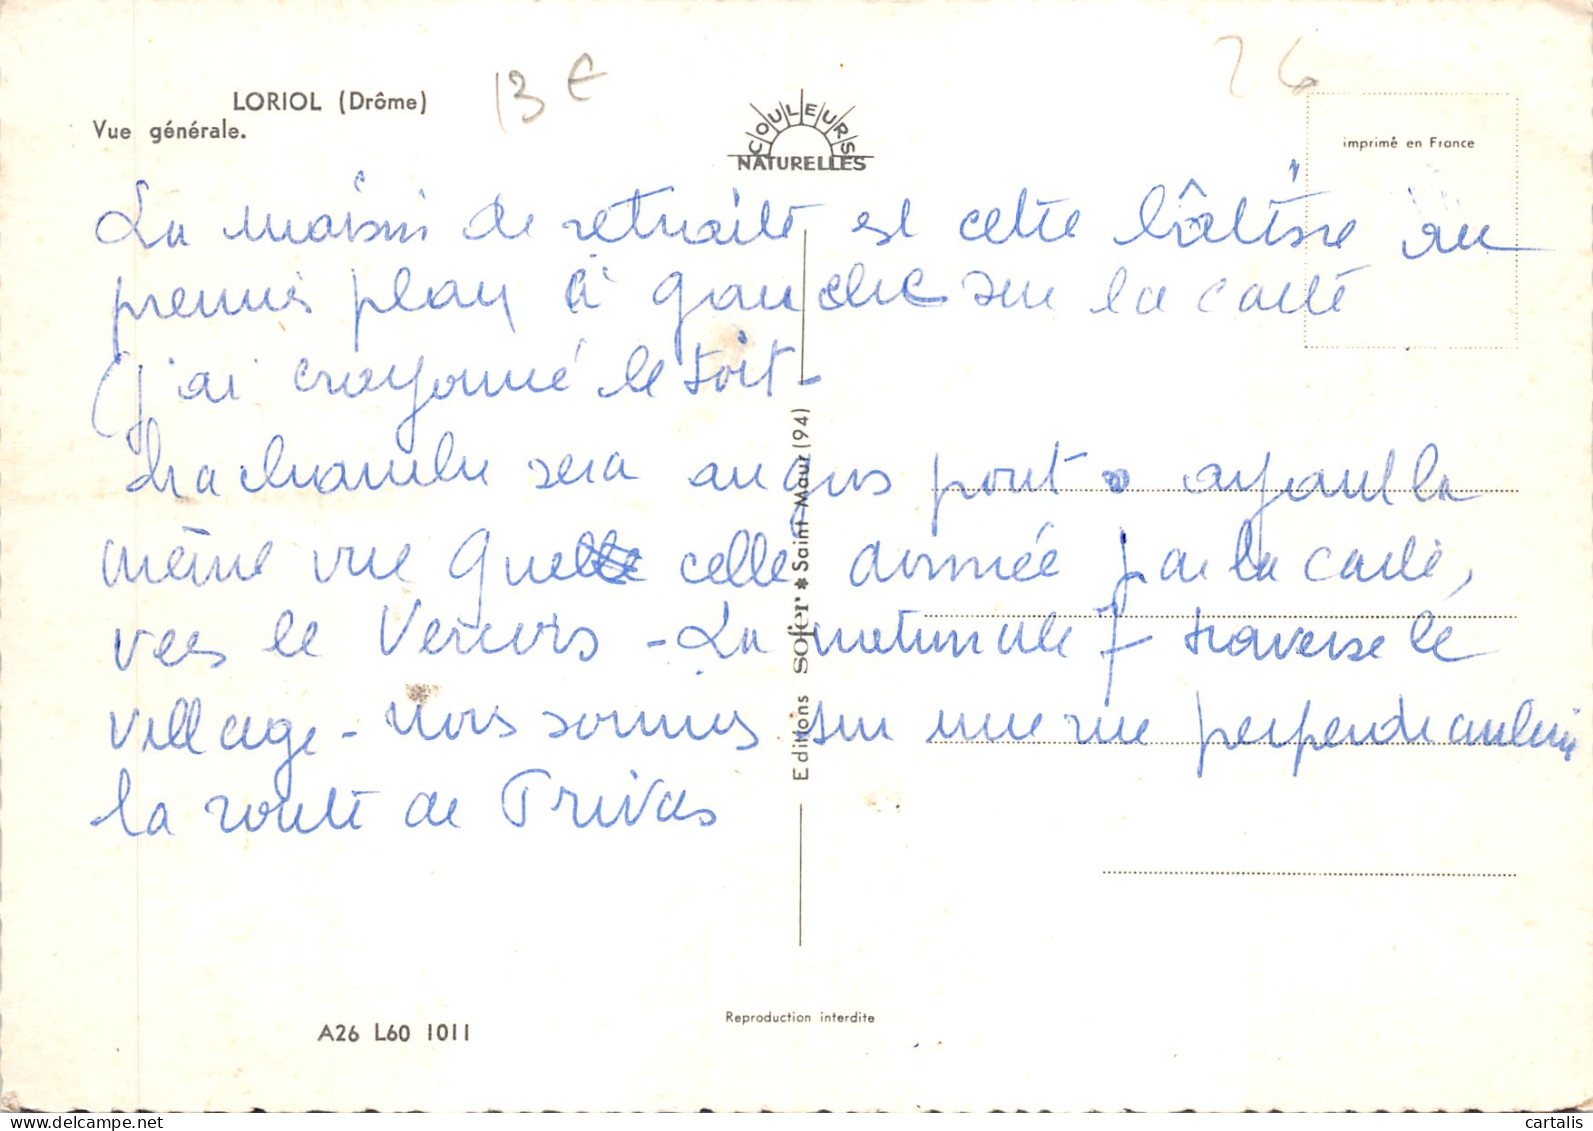 LORIOL (Drôme)
Vue générale.
13 €
26
COULEURS
NATURELLES
imprimé en France
La maison de retraite est cette bâtisse au
premier plan à gauche sur la carte
(j'ai crayonné le toit -
La chambre sera au gros pont ayant la
même vue que celle donnée par la carte,
vers le Vercors - La nationale 7 traverse le
village - Nous sommes sur une rue perpendiculaire
la route de Privas
Editions sofer * Saint Maur (94)
Reproduction interdite
A26 L60 1011
cartalis